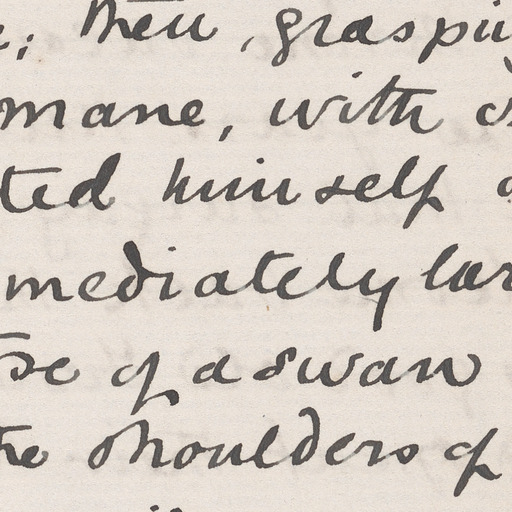 ; then, graspin
mane, with
ted himself
mediately lar
se of a swan
the shoulders of